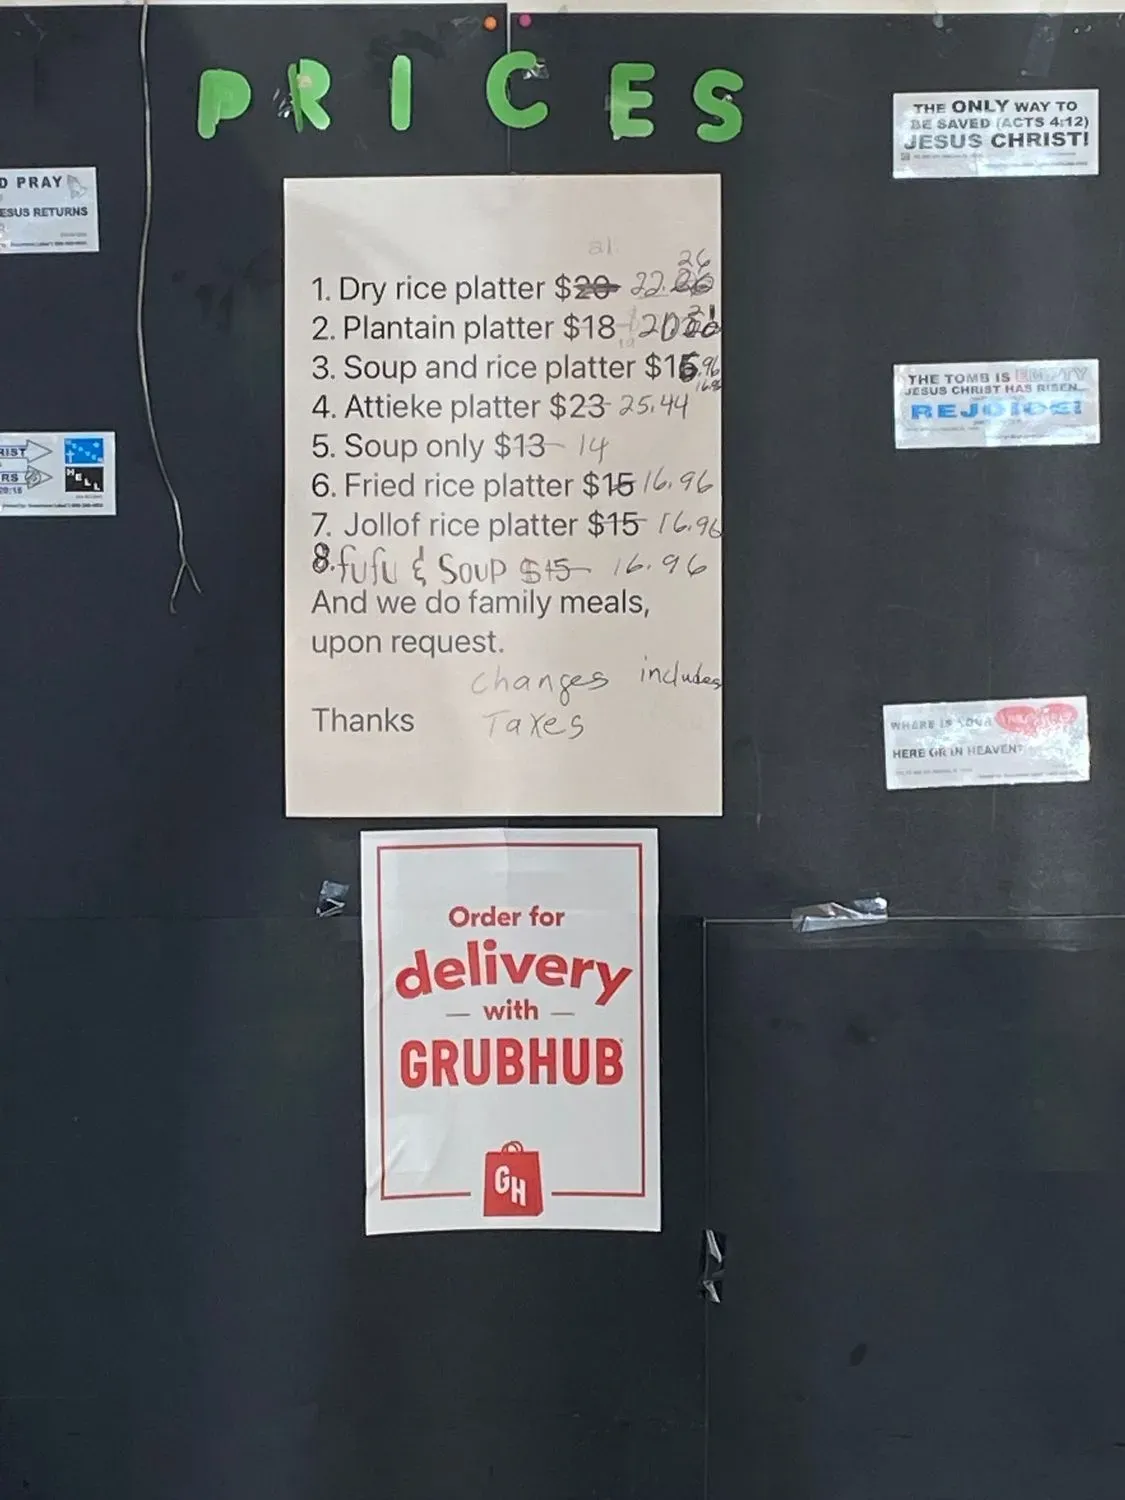 PRICES
THE ONLY WAY TO
BE SAVED (ACTS 4:12)
JESUS CHRIST!
D PRAY
ESUS RETURNS
1. Dry rice platter $20 22.26
2. Plantain platter $18
3. Soup and rice platter $15
16.96
4. Attieke platter $23 25.44
5. Soup only $13 14
6. Fried rice platter $15 16.96
7. Jollof rice platter $15 16.96
8. fufu & Soup $15 16.96
And we do family meals,
upon request.
changes includes
Thanks Taxes
THE TOMB IS EMPTY
JESUS CHRIST HAS RISEN...
REJOICE!
RIST
RS
HELL
WHERE IS YOUR
HERE OR IN HEAVEN?
Order for
delivery
with
GRUBHUB
GH